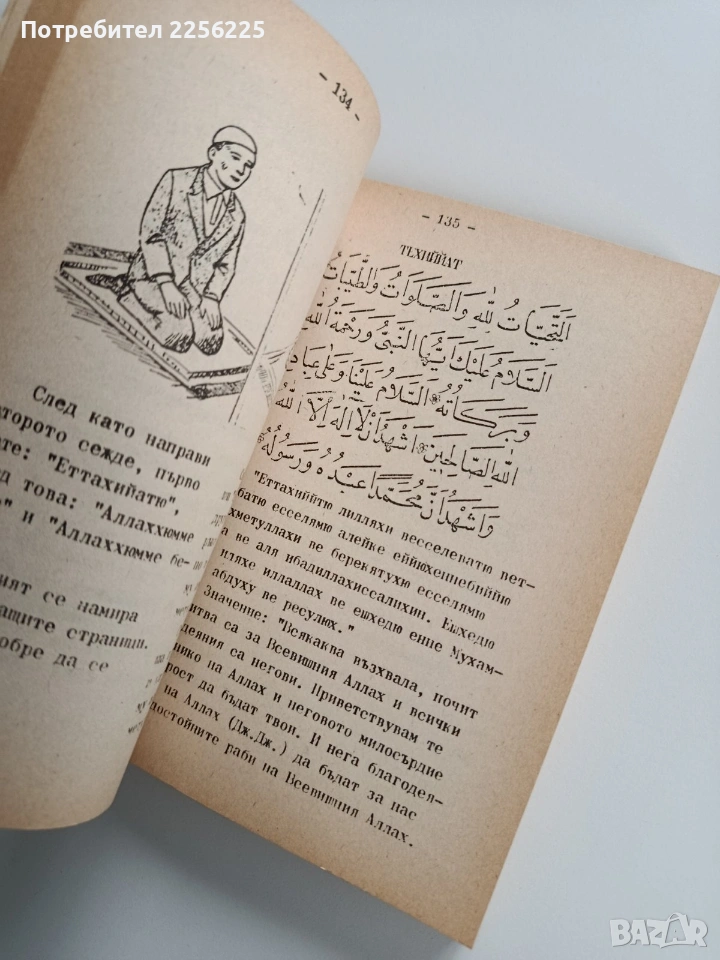 Потребител 2256225
- 134 -
След като направи
второто сежде, първо
"Еттахийатю",
това: "Аллаххюмме
и "Аллаххюмме бе-
се намира
страници.
добре да се
- 135 -
ТЕХИЙЙАТ
اَلتَّحِيَّاتُ لِلّٰهِ وَالصَّلَوَاتُ وَالطَّيِّبَاتُ
اَلسَّلَامُ عَلَيْكَ اَيُّهَا النَّبِيُّ وَرَحْمَةُ اللّٰهِ
وَبَرَكَاتُهُ اَلسَّلَامُ عَلَيْنَا وَعَلٰى عِبَادِ
اللّٰهِ الصَّالِحِينَ اَشْهَدُ اَنْ لَا اِلٰهَ اِلَّا اللّٰهُ
وَاَشْهَدُ اَنَّ مُحَمَّدًا عَبْدُهُ وَرَسُولُهُ
"Еттахиййтю лилляхи весселевату вет-
есселямю алейке еййюхеннебиййю
ве берекятухю есселямю
ве аля ибадиллахиссалихин. Ешхедю
иллаллах ве ешхедю енне Мухам-
абдуху ве ресулюх."
Значение: "Всякаква възхвала, почит
са за Всевишния Аллах и всички
са негови. Приветствувам те
на Аллах и неговото милосърдие
да бъдат твои. И нега благодея-
на Аллах (Дж.Дж.) да бъдат за нас
достойните раби на Всевишния Аллах.
BAZAR